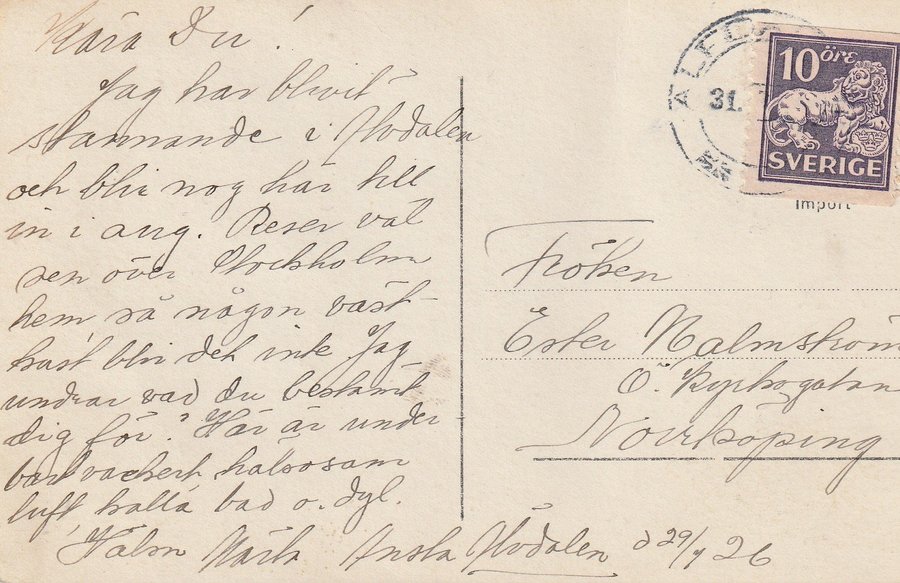 Kära Du!
Jag har blivit
stannande i Älvdalen
och blir nog här till
in i aug. Reser väl
sen över Stockholm
hem så någon väst-
kust blir det inte Jag
undrar vad du bestämt
dig för? Här är under
bart vackert, hälsosam
luft kalla bad o. dyl.
Märta Älvdalen d 29/7 26
10 öre
SVERIGE
31.
Import
Fröken
Ester Malmström
Ö.
Norrköping